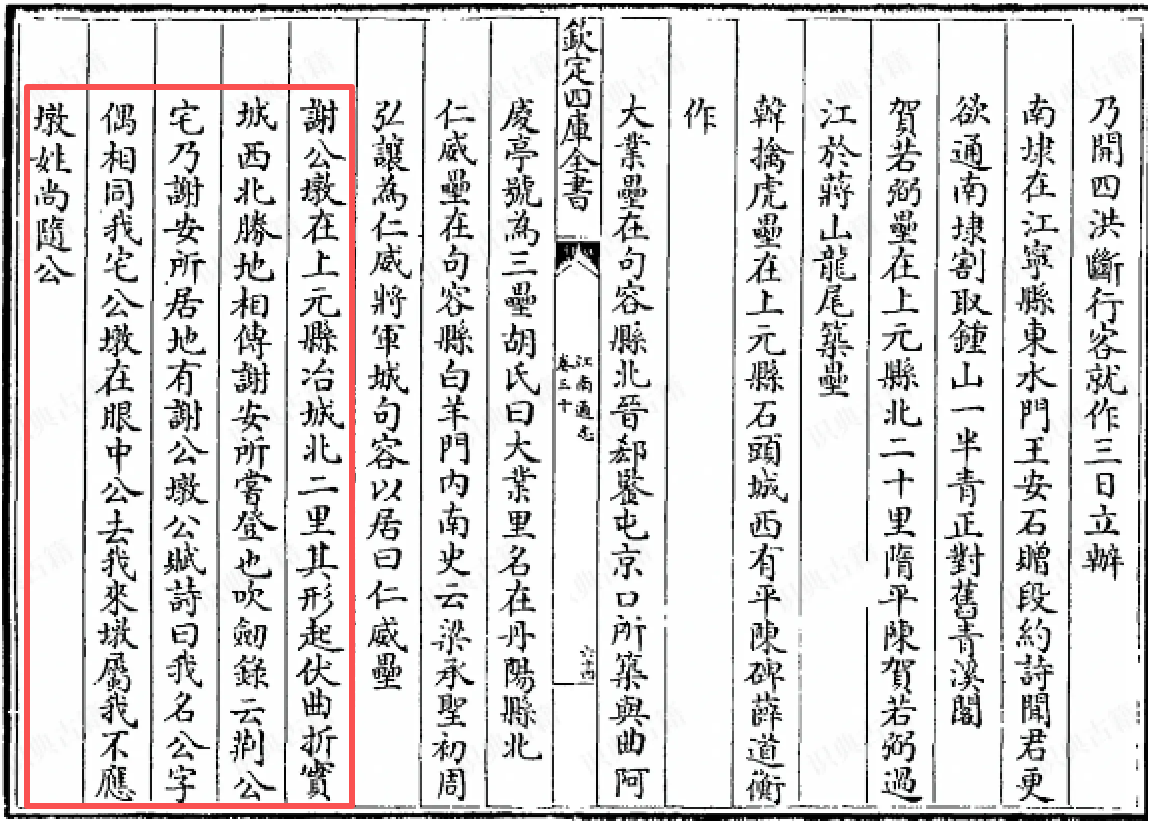 乃開四洪斷行客就作三日立辦
南埭在江寧縣東水門王安石贈段約詩聞君更
欲通南埭割取鍾山一半青正對舊青溪閣
賀若弼壘在上元縣北二十里隋平陳賀若弼過
江於蔣山龍尾築壘
韓擒虎壘在上元縣石頭城西有平陳碑薛道衡
作
大業壘在句容縣北晉郄鑒屯京口所築與曲阿
欽定四庫全書
江南通志
卷三十
六十四
庱亭號為三壘胡氏曰大業里名在丹陽縣北
仁威壘在句容縣白羊門內南史云梁承聖初周
弘讓為仁威將軍城句容以居曰仁威壘
謝公墩在上元縣冶城北二里其形起伏曲折實
城西北勝地相傳謝安所嘗登也吹劒錄云荆公
宅乃謝安所居地有謝公墩公賦詩曰我名公字
偶相同我宅公墩在眼中公去我來墩屬我不應
墩姓尚隨公